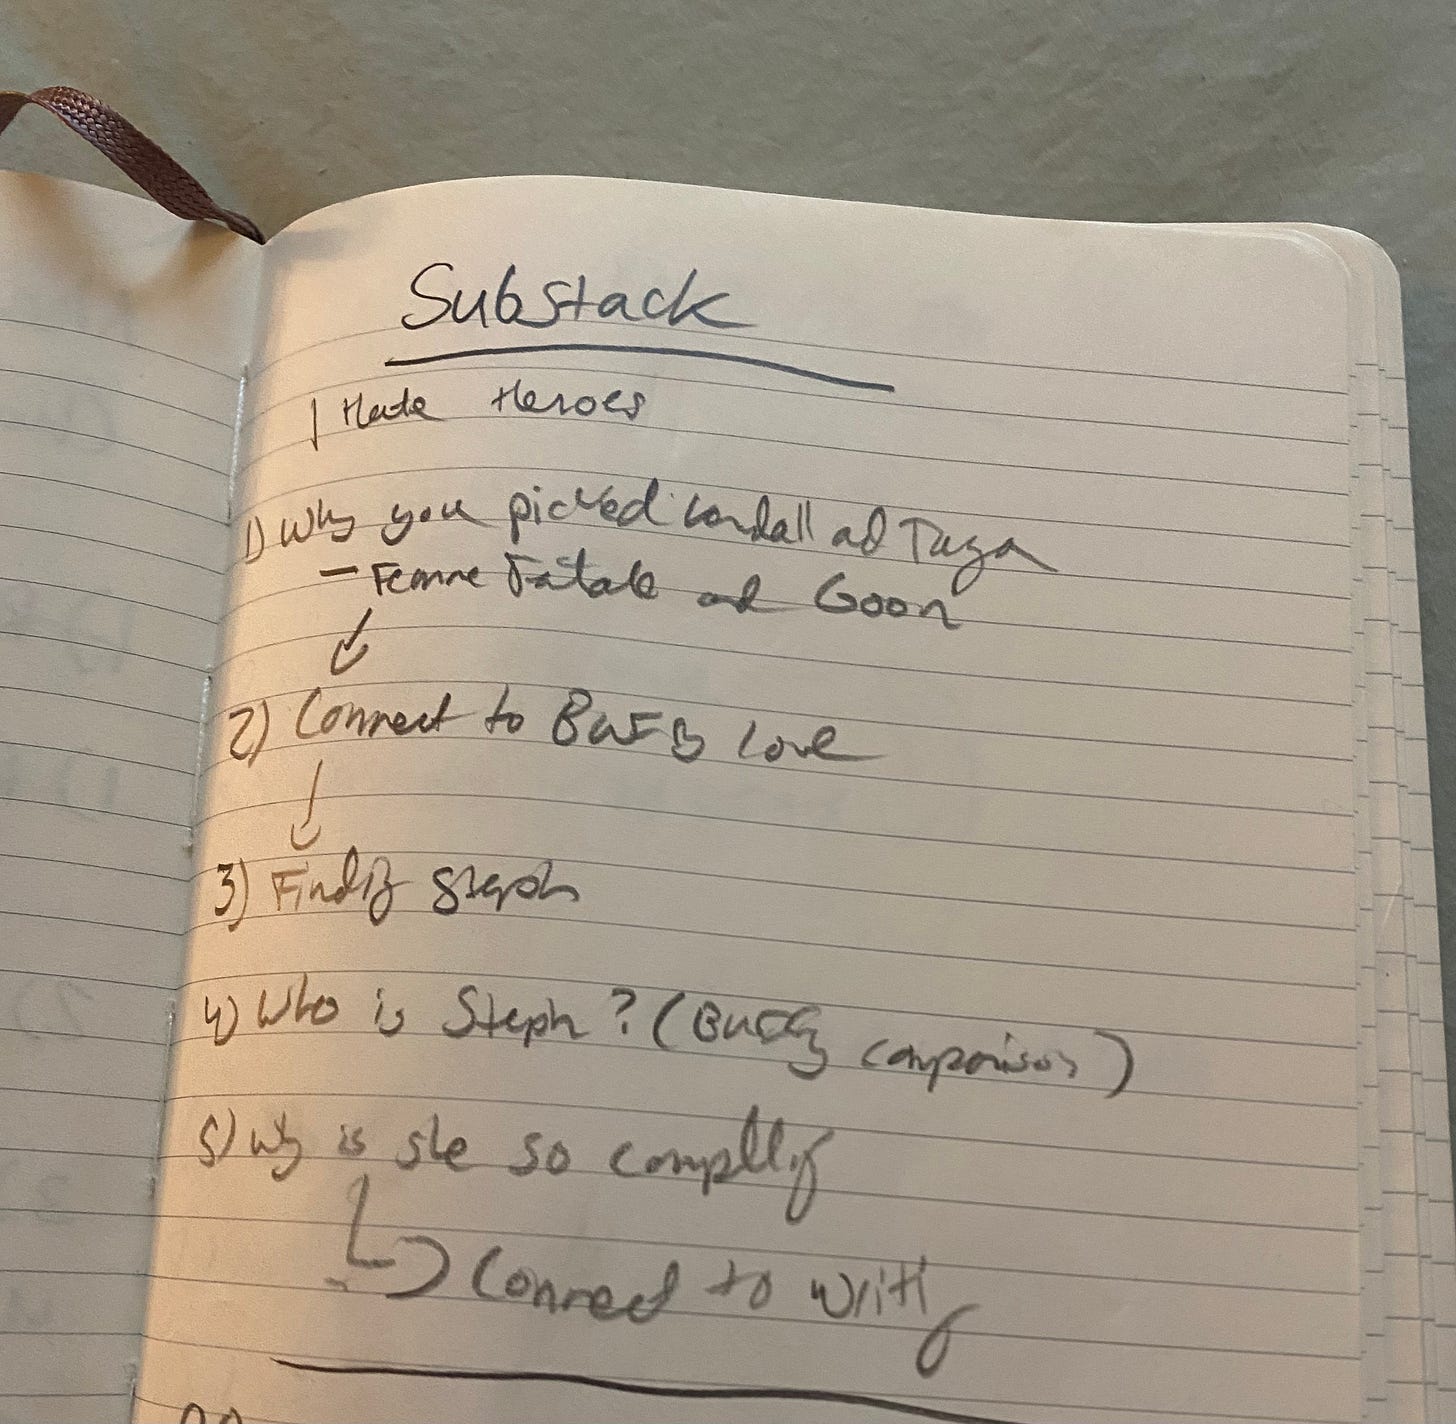 Substack
I Hate Heroes
1) Why you picked Kendall and Taiga
- Femme Fatale and Goon
2) Connect to Buffy love
3) Finding Steph
4) Who is Steph? (Buffy comparison)
5) Why is she so compelling
Connect to writing